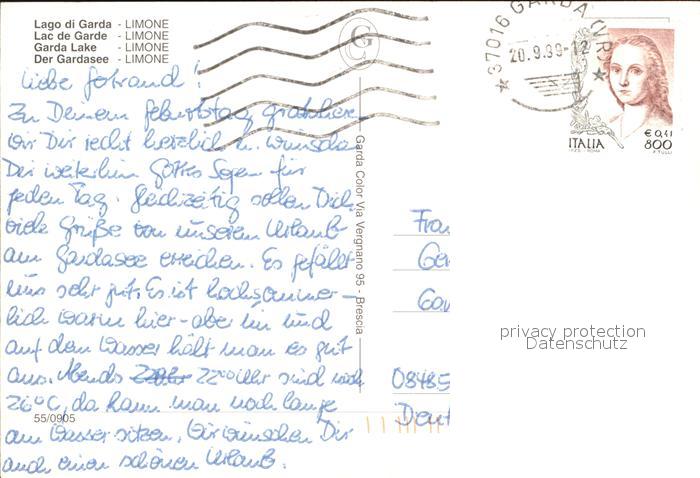 Lago di Garda - LIMONE
Lac de Garde - LIMONE
Garda Lake - LIMONE
Der Gardasee - LIMONE
GC
37016 GARDA (VR)
20.9.99-12
ITALIA
€ 0,41
800
Liebe !
Zu Deinem Geburtstag gratulieren
wir Dir recht herzlich u. wünschen
Dir weiterhin Gottes Segen für
jeden Tag. Gleichzeitig sollen Dich
viele Grüße von unserem Urlaub
am Gardasee erreichen. Es gefällt
uns sehr gut. Es ist hochsommer-
lich warm hier - aber im und
auf dem Wasser hält man es gut
aus. Abends 22⁰⁰ Uhr sind noch
26°C, da kann man noch lange
am Wasser sitzen. Wir wünschen Dir
auch einen schönen Urlaub.
Garda Color Via Vergnano 95 - Brescia
55/0905
Frau
Ger
08485
Deut
privacy protection
Datenschutz